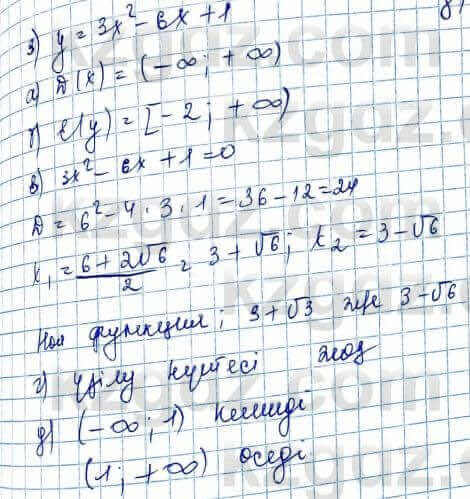 з) y = 3x² - 6x + 1
а) D(x) = (-∞; +∞)
б) E(y) = [-2; +∞)
в) 3x² - 6x + 1 = 0
D = 6² - 4 · 3 · 1 = 36 - 12 = 24
x₁ = (6 + 2√6)/2 = 3 + √6; x₂ = 3 - √6
Нол функция; 3 + √3 және 3 - √6
г) үзілу нүктесі жоқ
д) (-∞; 1) кемиді
(1; +∞) өседі
kzgdz.com